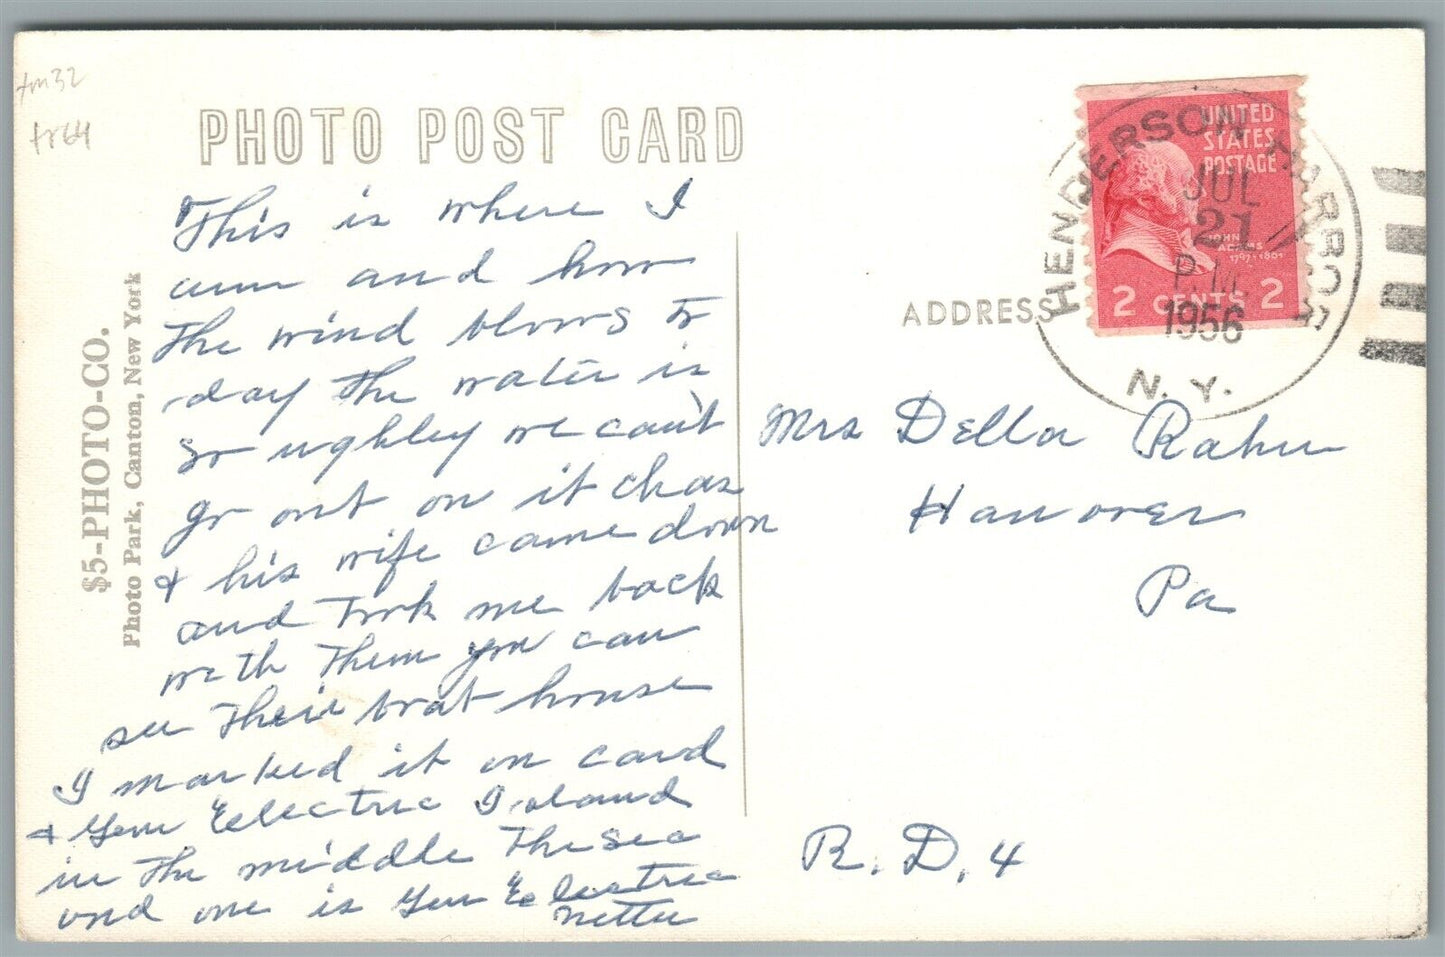 tm32
tr64
PHOTO POST CARD
$5-PHOTO-CO.
Photo Park, Canton, New York
This is where I
am and how
the wind blows to
day the water is
so ughley we can't
go out on it chas
& his wife came down
and took me back
with them you can
see their boat house
I marked it on card
& Gen Eelectric Island
in the middle the sec
ond one is Gen Eelectric
nettie
ADDRESS
UNITED
STATES
POSTAGE
JOHN
ADAMS
1797·1801
2 CENTS 2
HENDERSON HARBOR
JUL
21
P.M.
1956
N.Y.
Mrs Della Rahn
Hanover
Pa
R.D.4